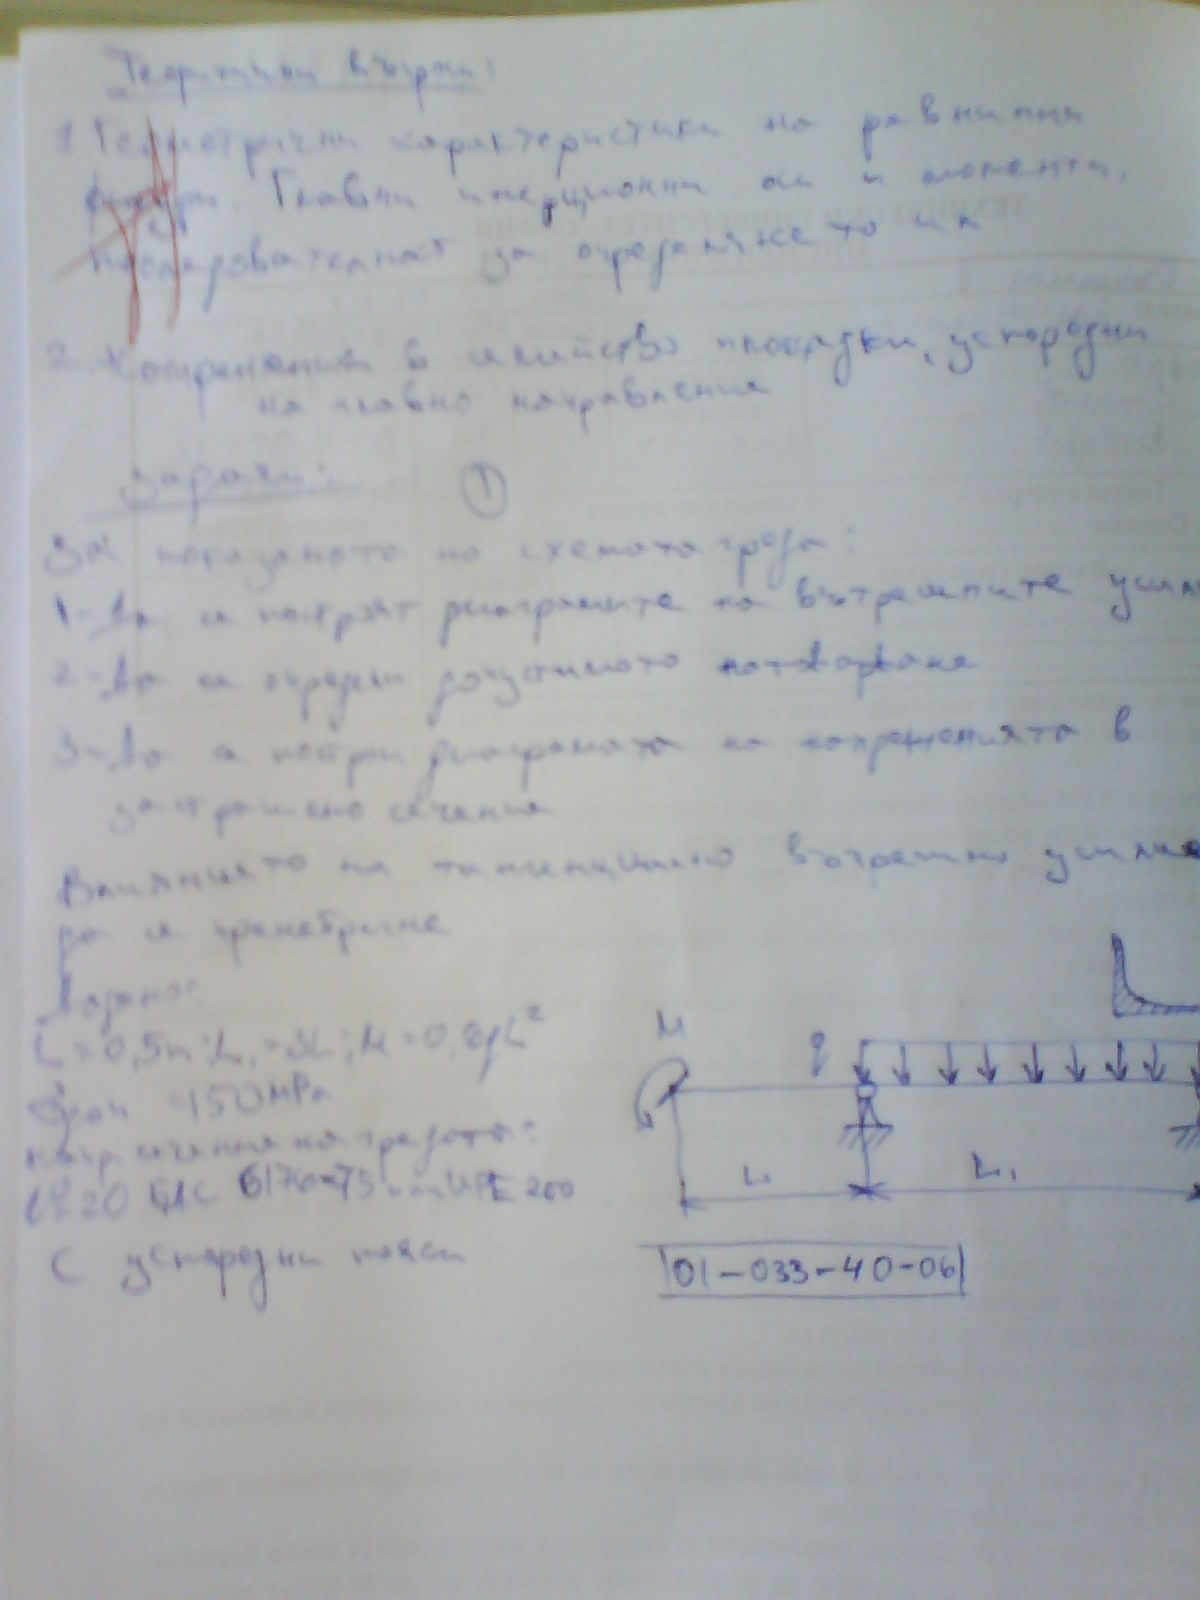 Теоретични въпроси:
1. Геометрични характеристики на равнинни
фигури. Главни инерционни оси и моменти,
последователност за определянето им
2. Напрежения в семейство площадки, успоредни
на главно направление
Задачи: 1
За показаната на схемата греда:
1- Да се построят диаграмите на вътрешните
2- Да се определи допустимото натоварване
3- Да се построи диаграмата на напреженията в
застрашено сечение
Влиянието на тангенциално вътрешно усилие
да се пренебрегне
Дадено:
L = 0,5m; L1 = 3L; M = 0,8qL²
150 MPa
напр. сечения на гредата:
№20 БДС 6176-75 или UPE 200
с успоредни пояси
M
q
L L1
01-033-40-06